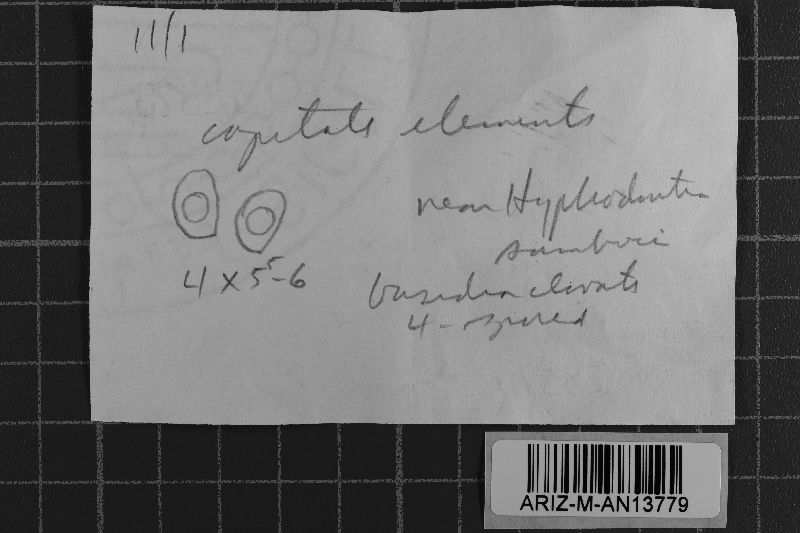 11/1
capitate elements
near Hyphodontia
sambuci
4 x 5⁵-6
basidia clavate
4-spored
ARIZ-M-AN13779